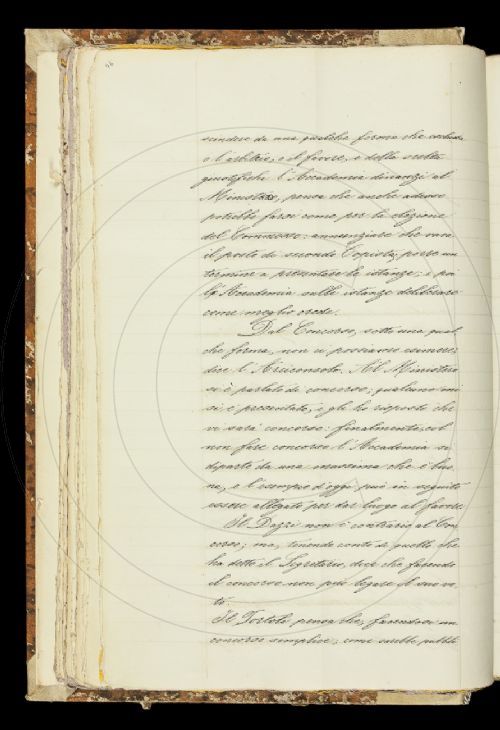 46
scindere da una qualche forma che escluda
o l'arbitrio, o il favore, e della scelta
giustifichi l'Accademia dinanzi al
Ministero, pensa che anche adesso
potrebbe farsi come per la elezione
del Commesso: annunziare che
il posto di secondo Copista; porre un
termine a presentare le istanze; e poi
l'Accademia sulle istanze deliberare
come meglio crede.
Dal Concorso, sotto una qual
che forma, non ci possiamo
dice l'Arciconsolo. Al Ministero
si è parlato di concorso; qualcuno mi
si è presentato, e gli ho risposto che
vi sarà concorso: finalmente, col
non fare concorso l'Accademia si
diparte da una massima che è buo
na, e l'esempio d'oggi può in seguito
essere allegato per dar luogo al favore.
Il Dazzi non è contrario al Con
corso; ma, tenendo conto di quello che
ha detto il Segretario, dice che facendo
il concorso non può legare il suo vo
to.
Il Tortoli pensa che, facendosi un
concorso semplice, come sarebbe